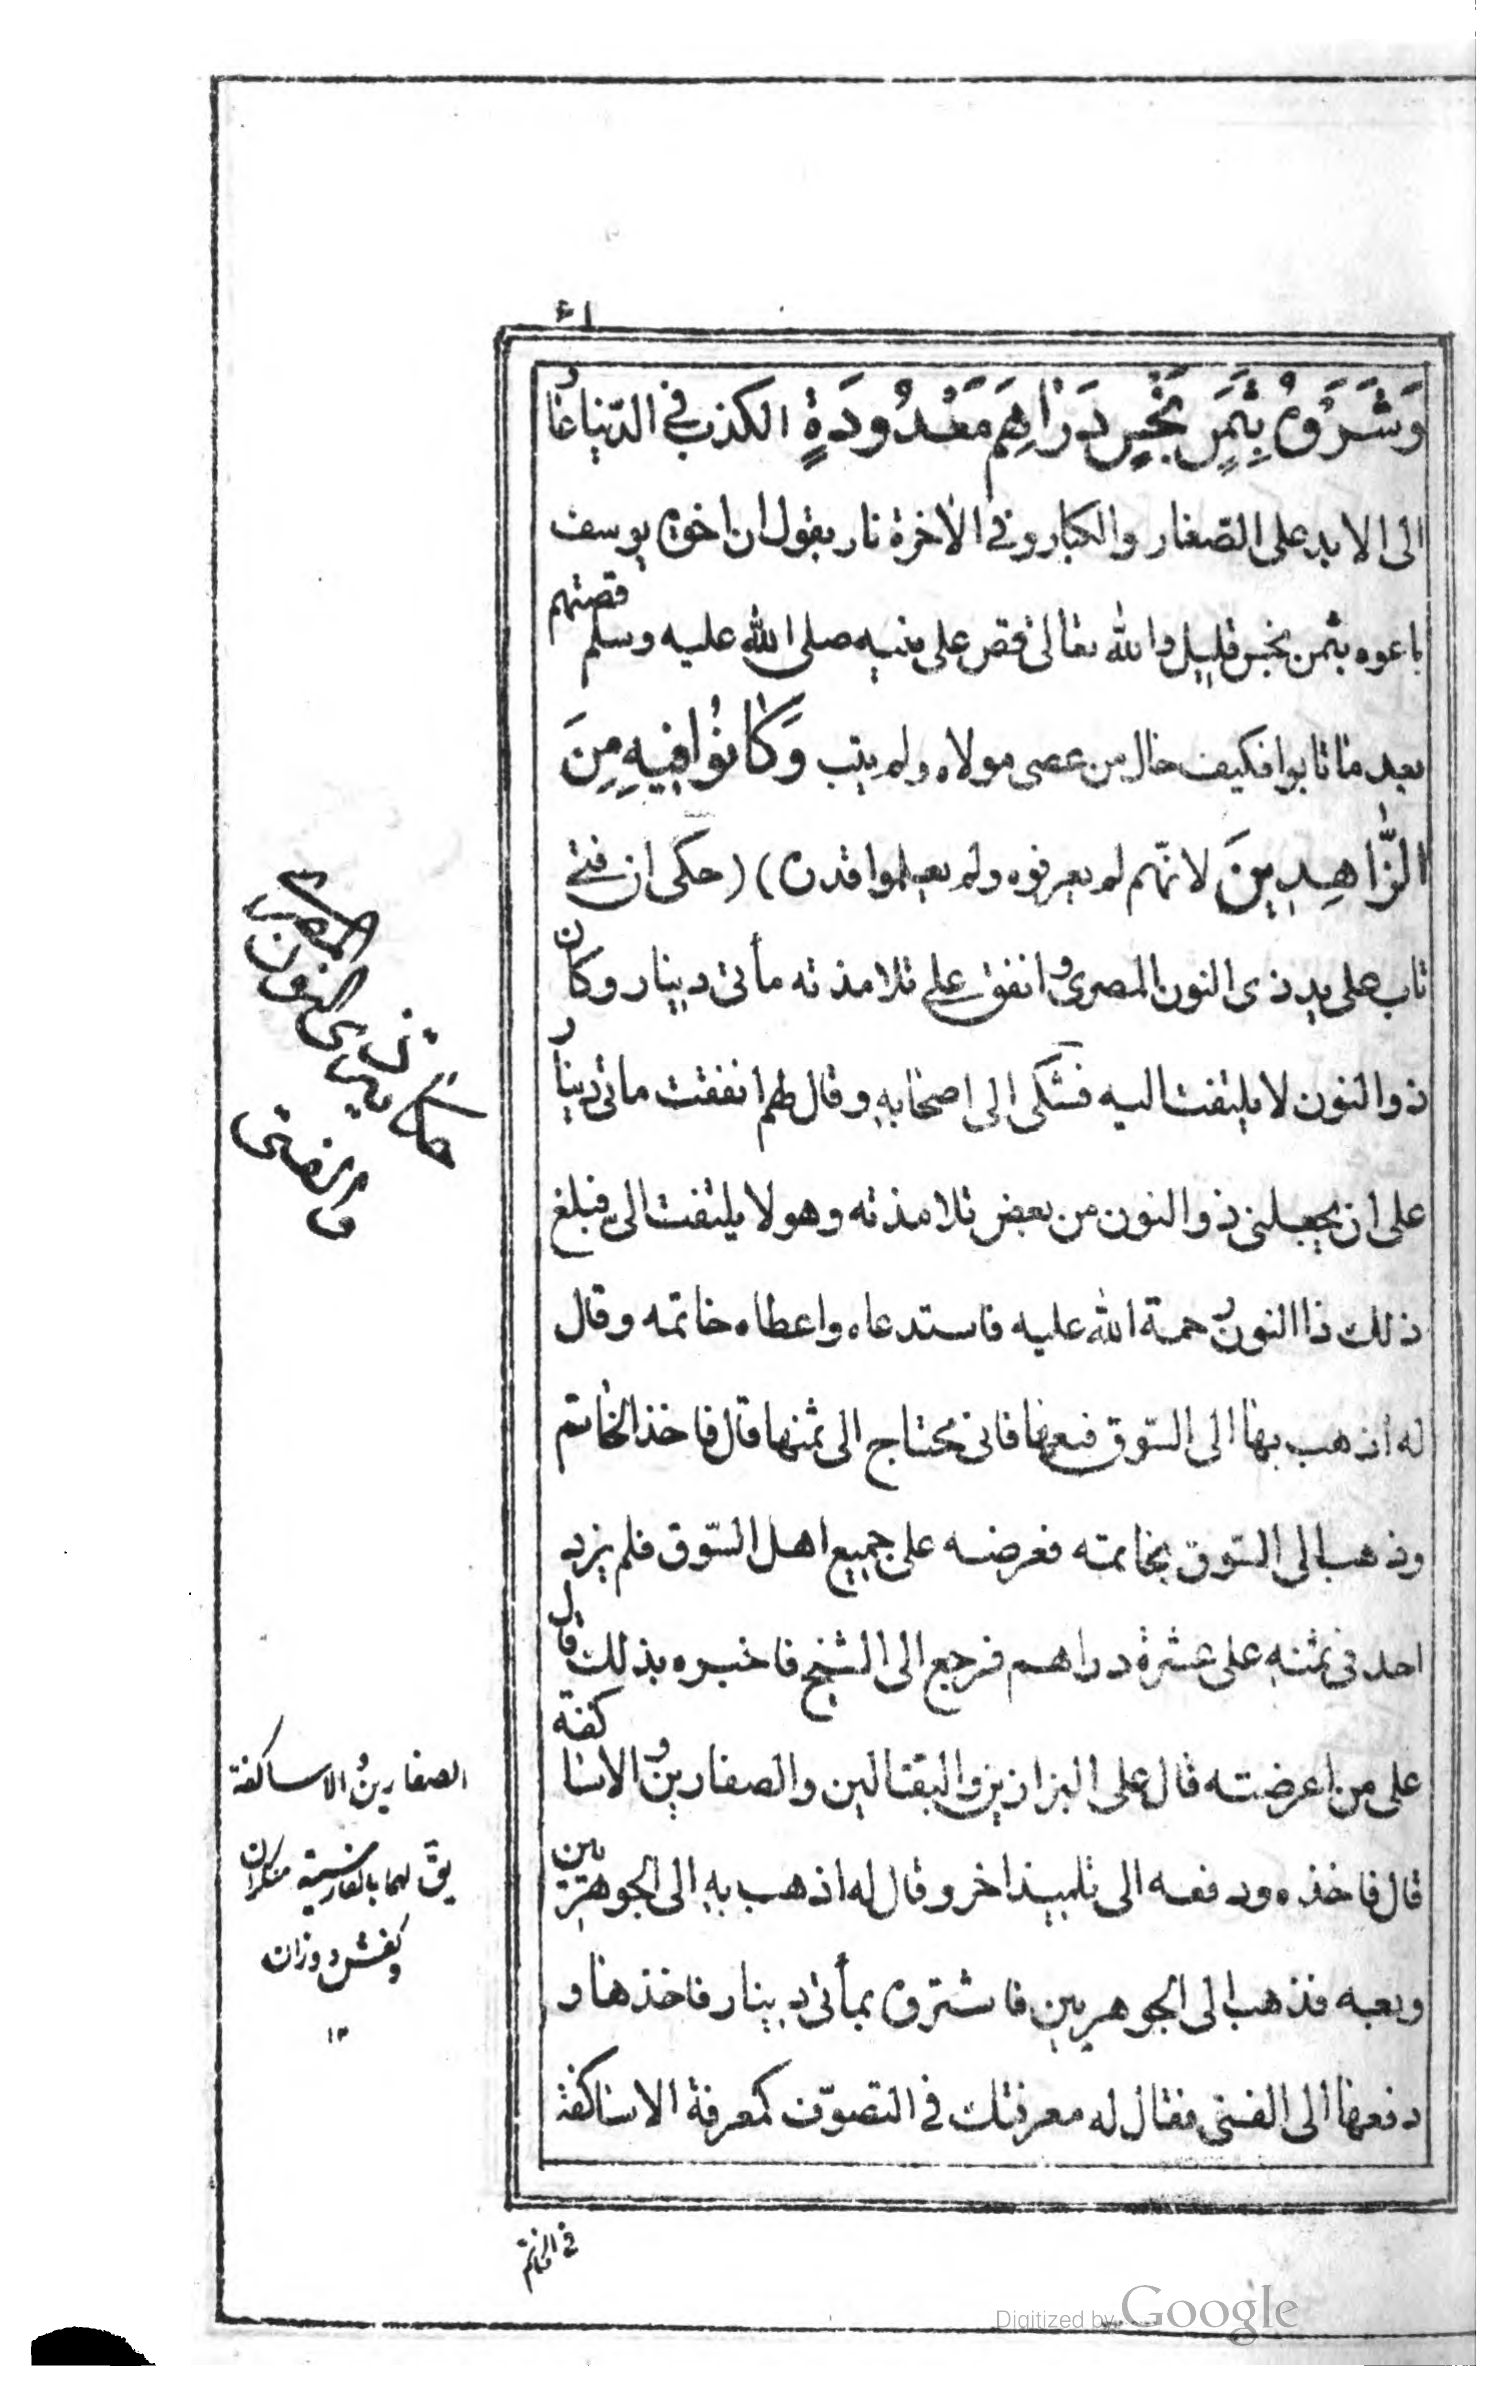 ٤١
وَشَرَوْهُ بِثَمَنٍ بَخْسٍ دَرَاهِمَ مَعْدُودَةٍ الكذب فى الدّنيا عار
الى الابد على الصّغار والكبار وفى الآخرة نار يقول ان اخوة يوسف
باعوه بثمن بخس قليل والله تعالى قص على نبيه صلى الله عليه وسلم قصتهم
بعد ما تابوا فكيف حال من عصى مولاه ولم يتب وَكَانُوا فِيهِ مِنَ
الزَّاهِدِينَ لانّهم لم يعرفوه ولم يعلموا قدره) (حكى ان فتى
تاب على يد ذى النون المصرى وانفق على تلامذته مأتى دينار وكان
ذوالنون لا يلتفت اليه فشكى الى اصحابه وقال لهم انفقت مأتى دينار
على ان يجعلنى ذوالنون من بعض تلامذته وهو لا يلتفت الى فبلغ
ذلك ذا النون رحمة الله عليه فاستدعاه واعطاه خاتمه وقال
له اذهب بها الى السّوق فبعها فانى محتاج الى ثمنها قال فاخذ الخاتم
وذهب الى السّوق بخاتمه فعرضه على جميع اهل السّوق فلم يزد
احد فى ثمنه على عشرة دراهم فرجع الى الشيخ فاخبره بذلك قال
على من اعرضته قال على البزازين والبقالين والصفارين والاساكفة
قال فاخذه ودفعه الى تلميذ اخر وقال له اذهب به الى الجوهريين
وبعه فذهب الى الجوهريين فاشتروه بمأتى دينار فاخذها و
دفعها الى الفتى فقال له معرفتك فى التصوّف كمعرفة الاساكفة
حكاية ذى النون المصرى
والفتى
الصفارين والاساكفة
يق لهما بالفارسية مسكران
وكفش دوزان
١٢
فى الخاتم
Digitized by Google